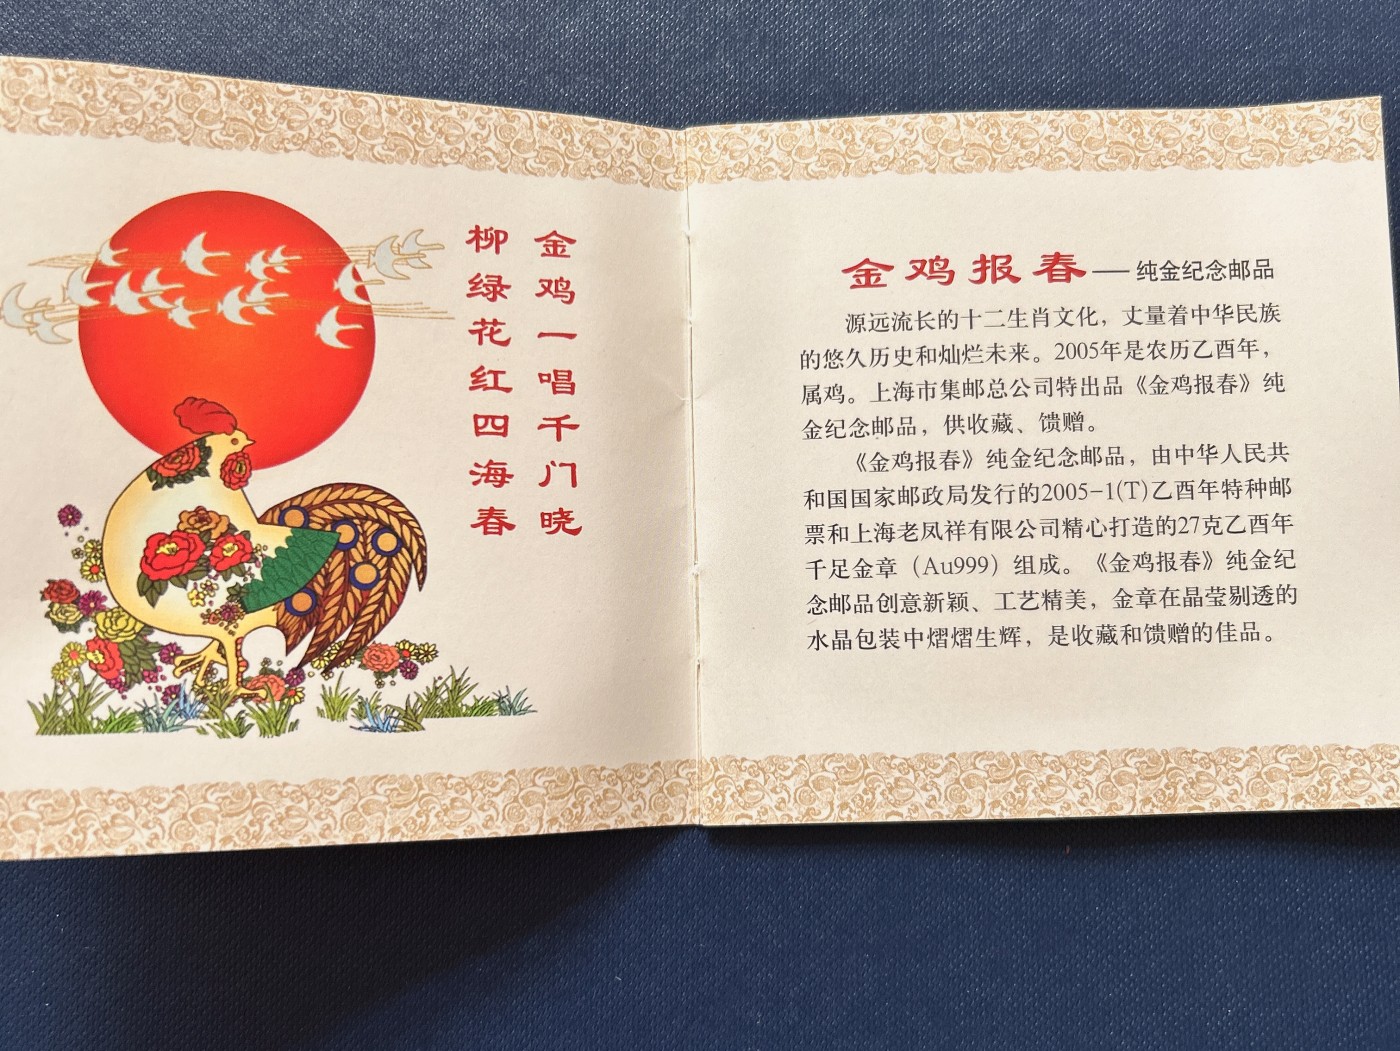 金鸡一唱千门晓
柳绿花红四海春
金鸡报春——纯金纪念邮品
源远流长的十二生肖文化，丈量着中华民族
的悠久历史和灿烂未来。2005年是农历乙酉年，
属鸡。上海市集邮总公司特出品《金鸡报春》纯
金纪念邮品，供收藏、馈赠。
《金鸡报春》纯金纪念邮品，由中华人民共
和国国家邮政局发行的2005-1(T)乙酉年特种邮
票和上海老凤祥有限公司精心打造的27克乙酉年
千足金章（Au999）组成。《金鸡报春》纯金纪
念邮品创意新颖、工艺精美，金章在晶莹剔透的
水晶包装中熠熠生辉，是收藏和馈赠的佳品。